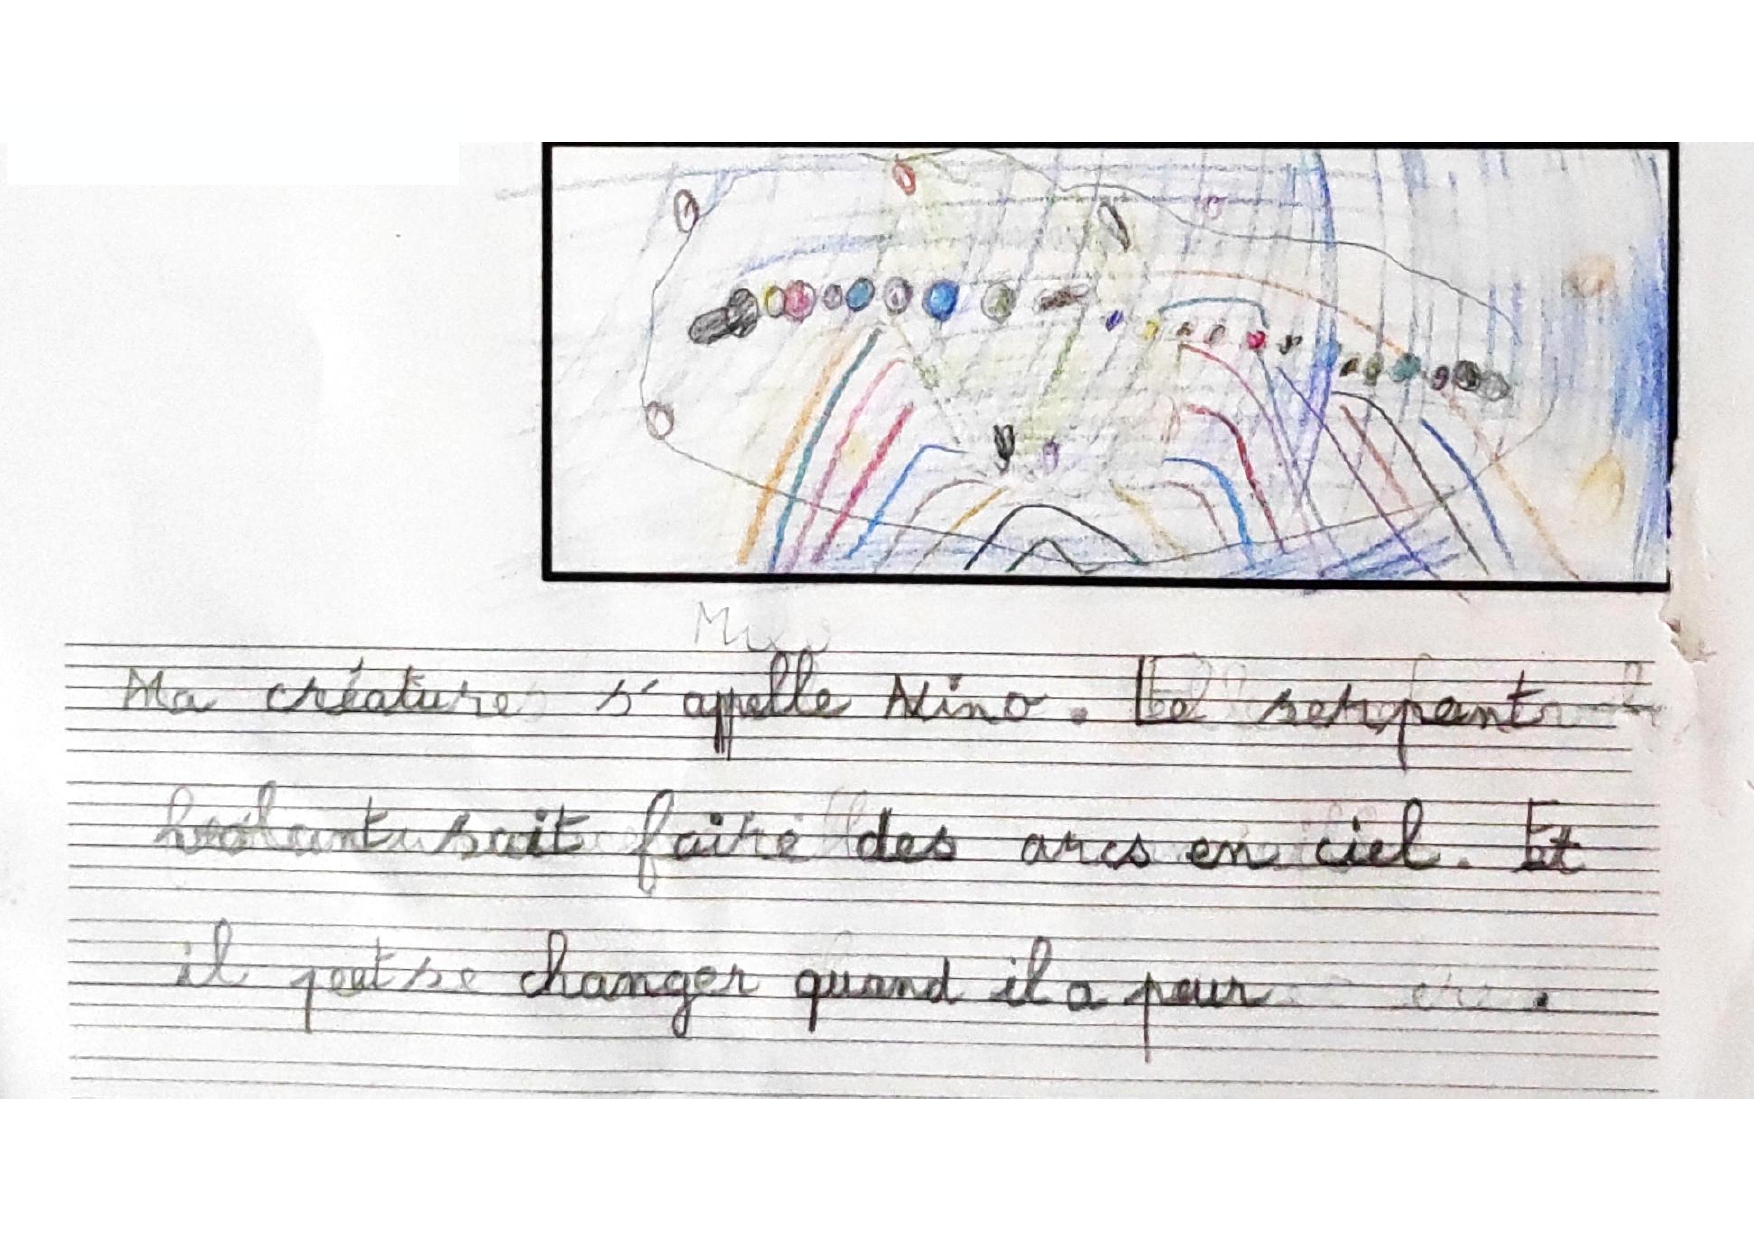 Ma créature s'appelle Nino. Le serpent
volant sait faire des arcs en ciel. Et
il peut se changer quand il a peur .